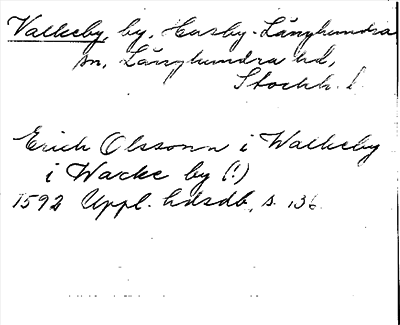 Valkeby, by, Husby-Långhundra
sn, Långhundra hd,
Stockh. l.
Erich Olssonn i Walkeby
i Wacke by (!)
1592 Uppl. hdsdb, s. 136